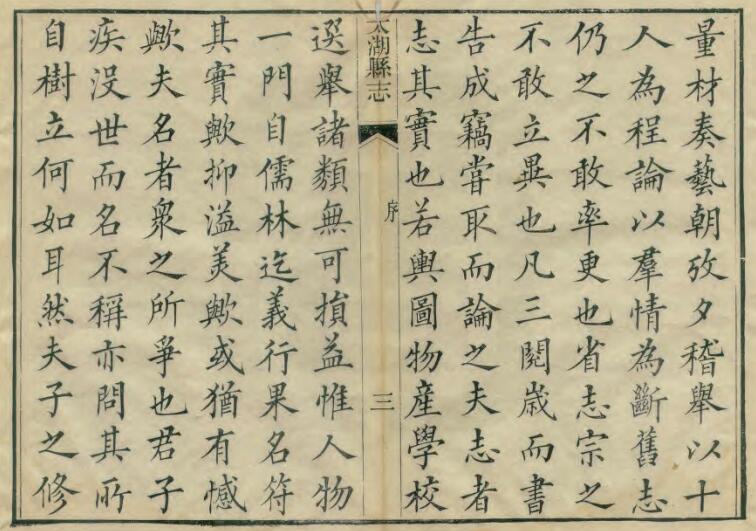 量材奏藝朝攷夕稽舉以十
人為程論以羣情為斷舊志
仍之不敢率更也省志宗之
不敢立異也凡三閱歲而書
告成竊嘗取而論之夫志者
志其實也若輿圖物産學校
太湖縣志
序
三
選舉諸類無可損益惟人物
一門自儒林迄義行果名符
其實歟抑溢美歟或猶有憾
歟夫名者衆之所爭也君子
疾没世而名不稱亦問其所
自樹立何如耳然夫子之修